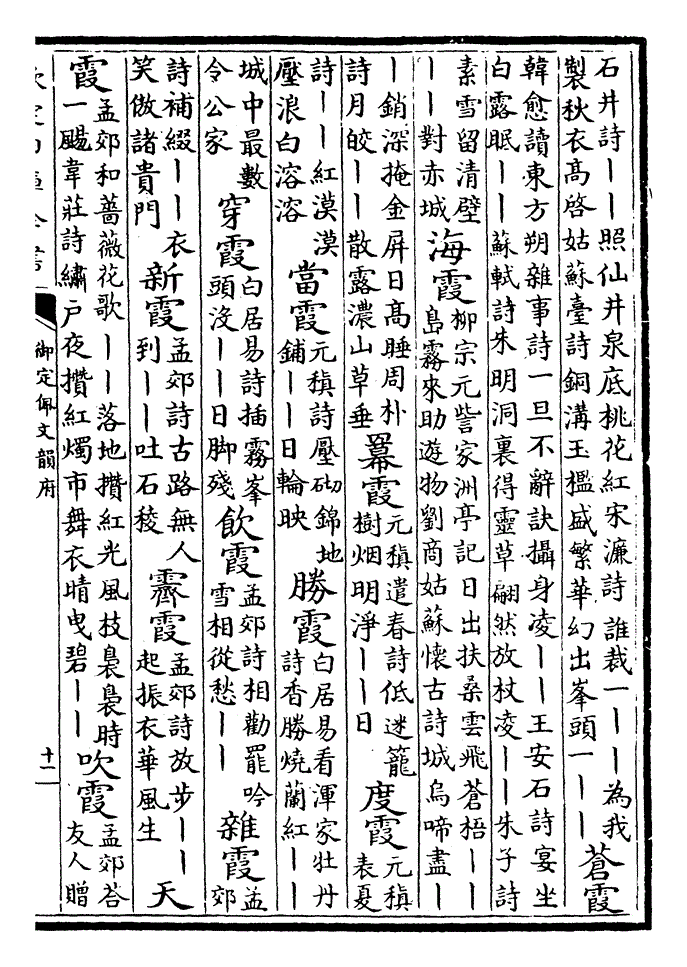 石井詩｜｜照仙井泉底桃花紅宋濂詩誰裁一｜｜為我
製秋衣高啓姑蘇臺詩銅溝玉檻盛繁華幻出峯頭一｜｜
蒼霞
韓愈讀東方朔雜事詩一旦不辭訣攝身凌｜｜王安石詩宴坐
白露眠｜｜蘇軾詩朱明洞裏得靈草翩然放杖凌｜｜朱子詩
素雪留清壁
｜｜對赤城
海霞
柳宗元訾家洲亭記日出扶桑雲飛蒼梧｜｜
島霧來助遊物劉商姑蘇懷古詩城烏啼盡｜｜
｜銷深掩金屏日高睡周朴
詩月皎｜｜散露濃山草垂
冪霞
元稹遣春詩低迷籠
樹烟明淨｜｜日
度霞
元稹
表夏
詩｜｜紅漠漠
壓浪白溶溶
當霞
元稹詩壓砌錦地
鋪｜｜日輪映
勝霞
白居易看渾家牡丹
詩香勝燒蘭紅｜｜
城中最數
令公家
穿霞
白居易詩插霧峯
頭沒｜｜日脚殘
飲霞
孟郊詩相勸罷吟
雪相從愁｜｜
雜霞
孟
郊
詩補綴｜｜衣
笑傲諸貴門
新霞
孟郊詩古路無人
到｜｜吐石稜
霽霞
孟郊詩放步｜｜
起振衣華風生
天
霞
孟郊和薔薇花歌｜｜落地攢紅光風枝裊裊時
一颺韋莊詩繡戶夜攢紅燭市舞衣晴曳碧｜｜
吹霞
孟郊荅
友人贈
御定佩文韻府
十二